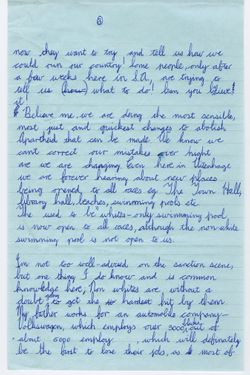 ②
now they want to try and tell us how we
could run our country! Some people, only after
a few weeks here in S.A, are trying to
tell us what to do! Can you believe
it!
Believe me, we are doing the most sensible,
most just and quickest changes to abolish
Apartheid that can be made. We know we
can't correct our mistakes over night
we are changing. Even here in Uitenhage
we are forever hearing about new places
being opened to all races eg. The Town Hall,
library hall, beaches, swimming pools etc.
The used to be whites-only swimming pool
is now open to all races, although the non-white
swimming pool is not open to us.
I'm not too well-advised on the sanction scene,
but one thing I do know and is common
knowledge here, Non whites are without a
doubt going to get the hardest hit by them.
My father works for an automobile company -
Volkswagen, which employs over 8000, out of
about 6000 employ blacks, which will definitely
be the first to lose their jobs, as most of